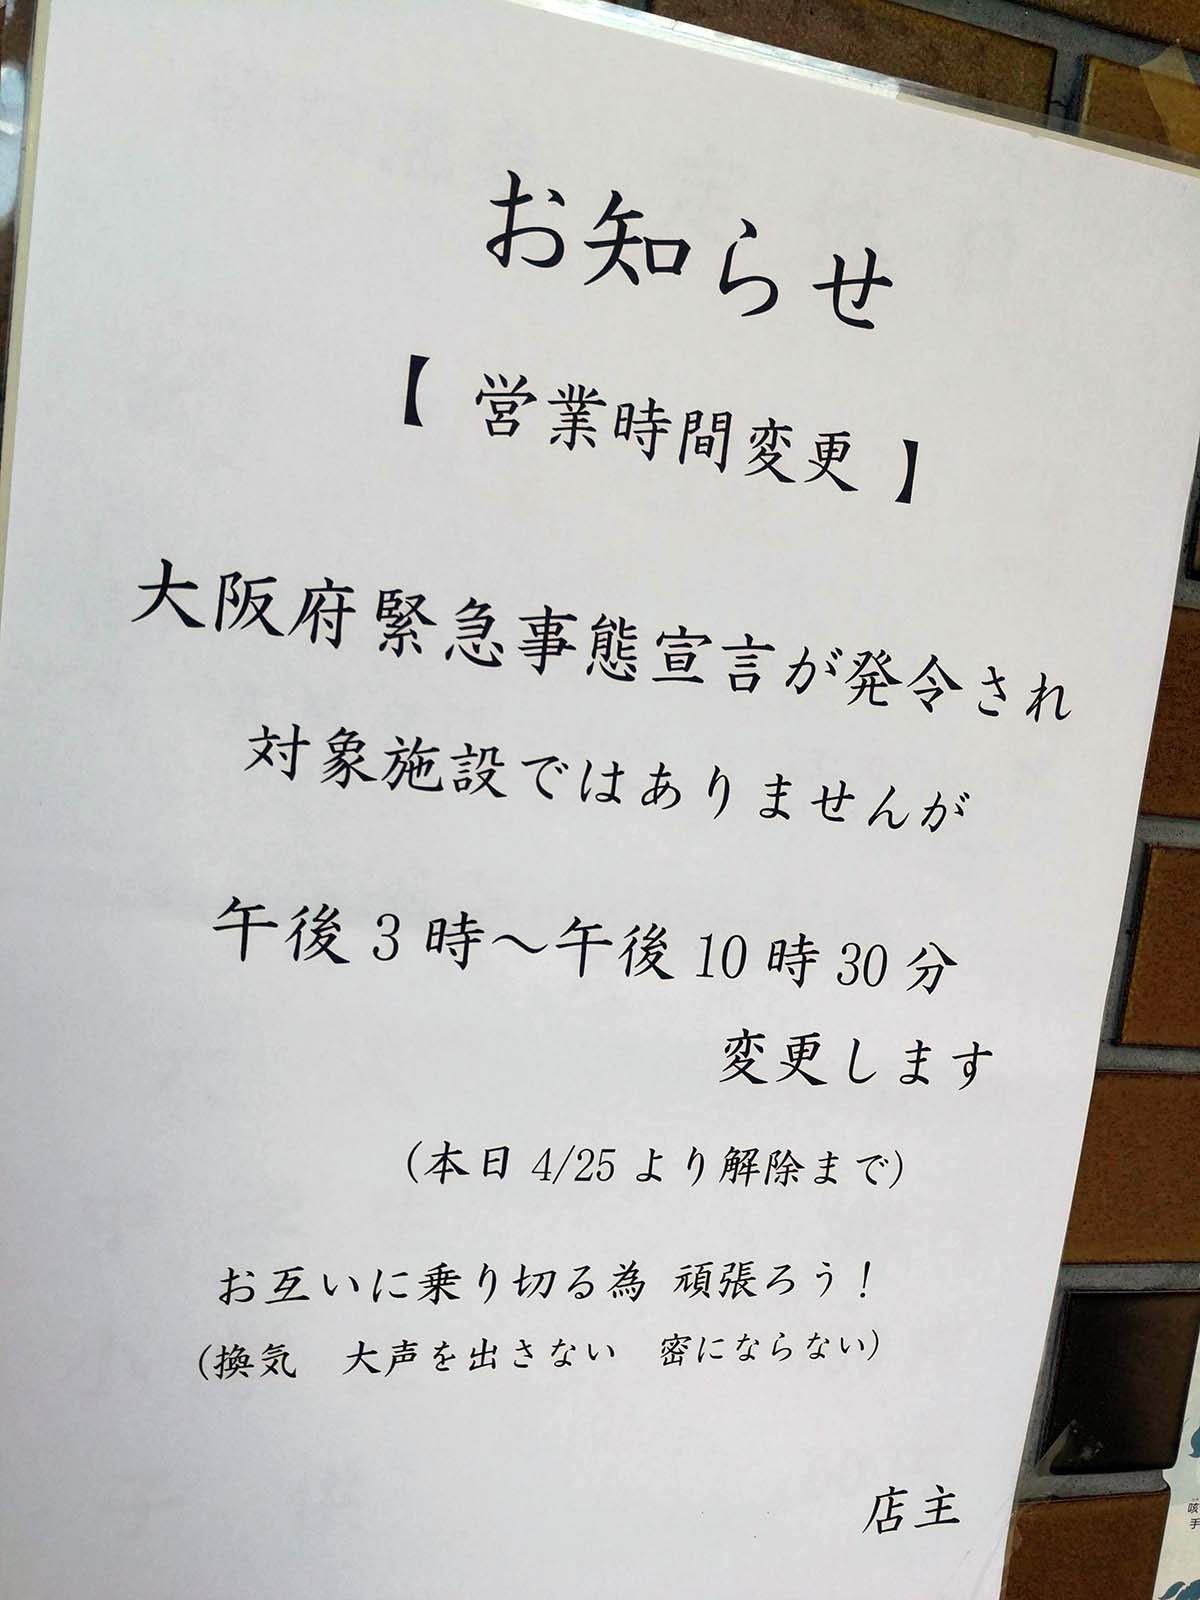 お知らせ
【 営業時間変更 】
大阪府緊急事態宣言が発令され
対象施設ではありませんが
午後3時～午後10時30分
変更します
(本日4/25より解除まで)
お互いに乗り切る為 頑張ろう！
(換気　大声を出さない　密にならない)
店主
咳
手